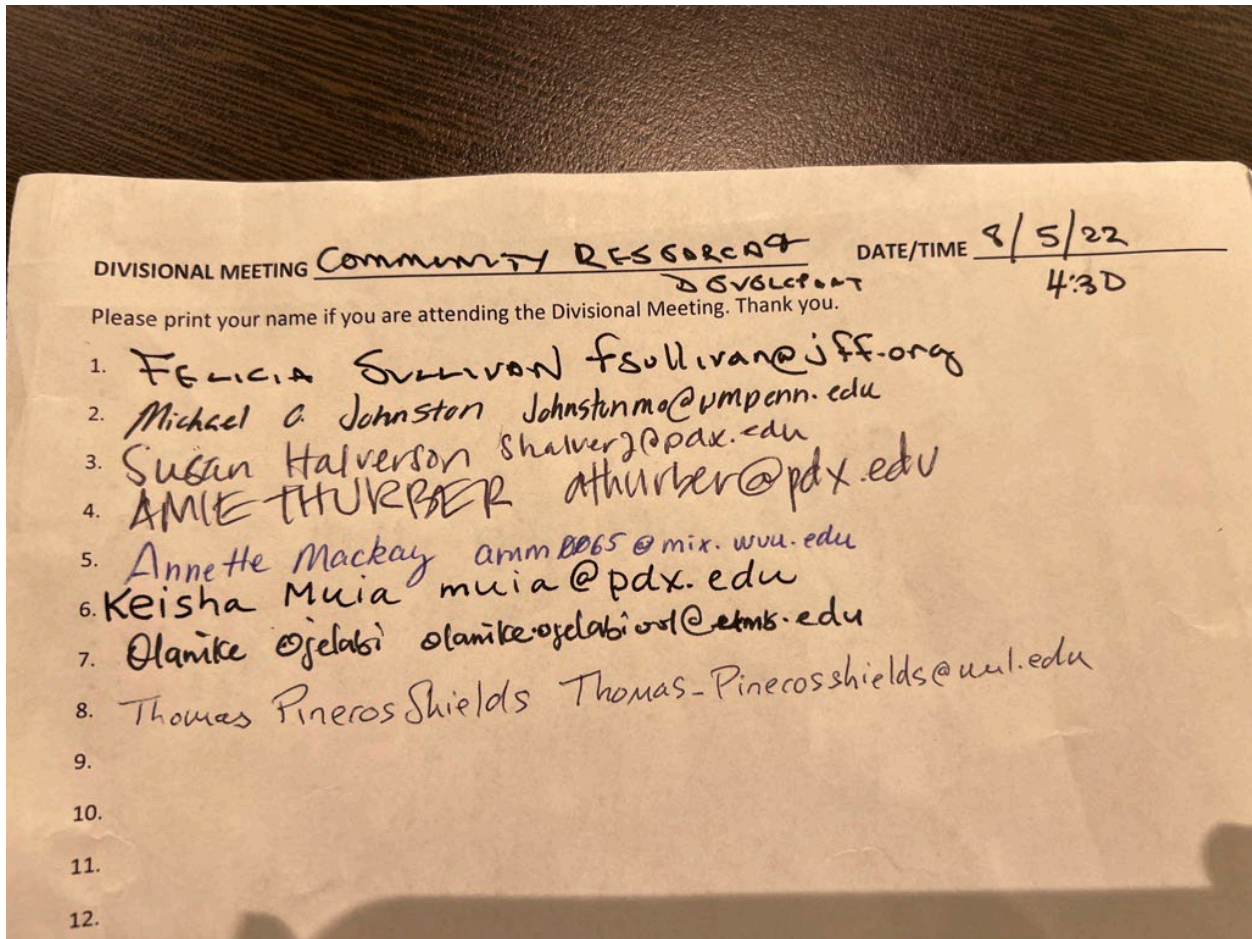 DIVISIONAL MEETING COMMUNITY RESEARCH DATE/TIME 8/5/22
DEVELOPMENT 4:30
Please print your name if you are attending the Divisional Meeting. Thank you.
1. FELICIA SULLIVAN fsullivan@jff.org
2. Michael O. Johnston Johnstonmo@wmpenn.edu
3. Susan Halverson shalver2@pdx.edu
4. AMIE THURBER athurber@pdx.edu
5. Annette Mackay amm0065@mix.wvu.edu
6. Keisha Muia muia@pdx.edu
7. Olanike Ojelabi
8. Thomas Pineros Shields Thomas_Pinerosshields@uml.edu
9.
10.
11.
12.